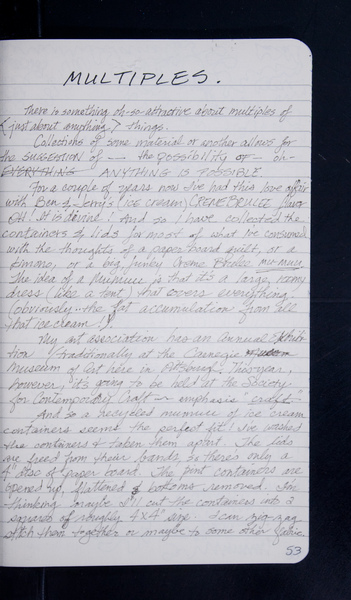 MULTIPLES.
There is something oh-so attractive about multiples of
{just about anything} things.
Collections of some material or another allows for
the SUGGESTION of — the POSSIBILITY OF — oh-
EVERYTHING ANYTHING IS POSSIBLE.
For a couple of years now I've had this love affair
with Ben & Jerry's (ice cream) CREME BRULEE flavor
OH! It is divine! And so I have collected the
containers & lids for most of what I've consumed
with the thoughts of a paper board quilt, or a
kimono, or a big funky Creme Brulee mu-muu.
The idea of a Mumuu is that it's a large, roomy
dress (like a tent) that covers everything!
(obviously - the fat accumulation from all
that ice cream!).
My art association has an Annual Exhibi-
tion (traditionally at the Carnegie
Museum of Art here in Pittsburgh). This year,
however, it's going to be held at the Society
for Contemporary Craft — emphasis "craft"
And so a recycled mumuu of ice cream
containers seems the perfect fit! I've washed
the containers & taken them apart. The lids
are freed from their bands, so there's only a
4" disc of paper board. The pint containers are
opened up, flattened & bottoms removed. I'm
thinking maybe I'll cut the containers into 3
squares of roughly 4 x 4" size. I can zig-zag
stitch them together or maybe to some other fabric
53